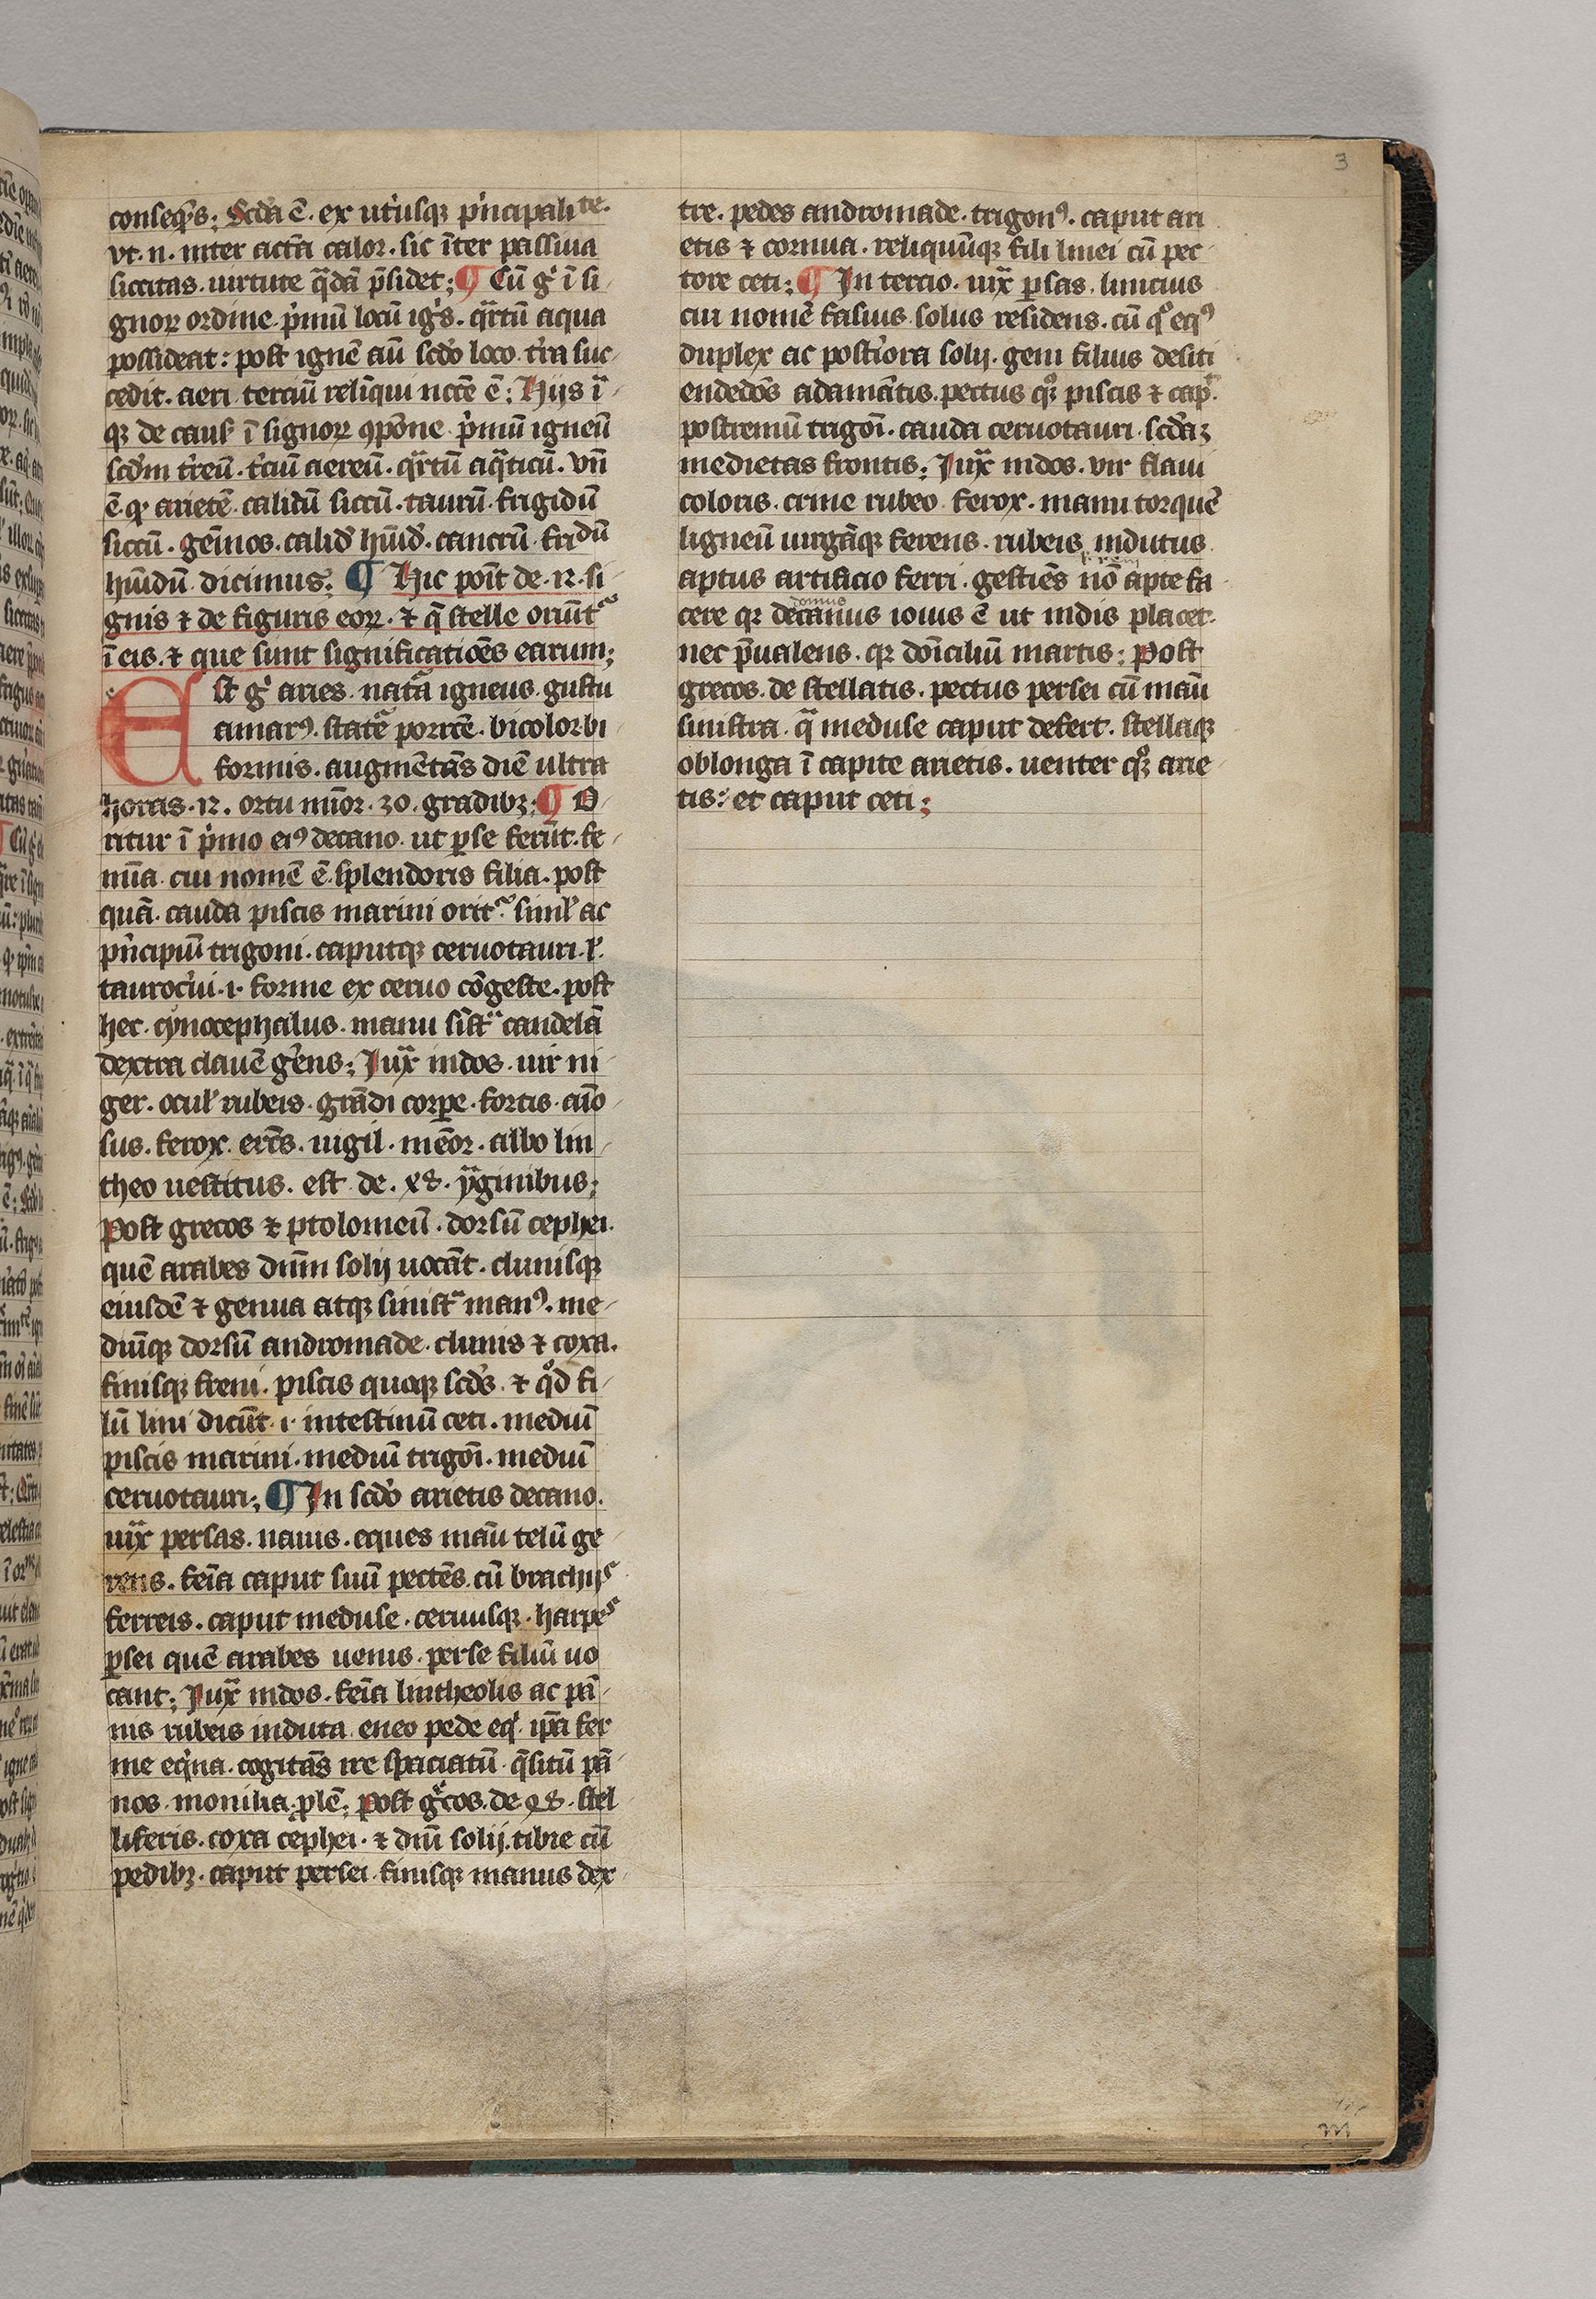 3
conseq̄ns; Scd̄a ē. ex utͥusq; pͥncipalite.
vt. n. inter actīa calor. sic īter passiua
siccitas. uirtute q̄dā p̄sidet; ¶ Cū gͦ ī si
gnoꝝ ordine. pͥmū locū igͥs. qͣrtū aqua
possideat: post ignē aū scd̄o loco t̄ra suc
cedit. aeri terciū relīqui nc̄cē ē; Hijs ī
q; de caus̄ ī signoꝝ ꝯpōne pͥmū igneū
scd̄m t̄reū. t̄ciū aereū. qͣrtū aqͣticū. Vn̄
ē ꝙ arietē calidū siccū. taurū frigidū
siccū. gēmos. calid̄ hūid̄. cancrū fridū
hūidū dicimus; ¶ Hic pon̄it de .12. si
gnis ⁊ de figuris eoꝝ. ⁊ q̄ stelle oriūtᷣ
ī eis. ⁊ que sunt significatiōes earum;
Est gͦ aries. natͣa igneus. gustu
amarꝰ. statͣē porrc̄ē. bicolor bi
formis. augmētās diē ultra
horas. 12. ortu mīor. 30. gradib;; ¶ O
ritur ī pͥmo eiꝰ decano. ut ꝑse ferūt. fe
mīa. cui nomē ē. splendoris filia. post
quā. cauda piscis marini oritᷣ. simil̄ ac
pͥncipiū trigoni. caputq; ceruotauri. l̄.
taurocͥui. i. forme ex ceruo cōgeste. post
hec. cynocephalus. manu sīstͣ candelā
dextra clauē gͤens; Juxͣ indos. uir ni
ger. ocul̄ rubeis. grādi corꝑe. fortis. aīo
sus. ferox. erc̄s. uigil. mēor. albo lin
theo uestitus. est de. 48. ymaginibus;
Post grecos ⁊ ptolomeū. dorsū cephei.
quē arabes dn̄m solij uocāt. clunisq;
eiusdē ⁊ genua atq; sinistͣ manꝰ. me
diūq; dorsū andromade. clunis ⁊ coxa.
finisq; freni. piscis quoq; scd̄s. ⁊ qͦd fi
lū lini dicūt. i. intestinū ceti. mediū
piscis marini. mediū trigōi. mediū
ceruotauri; ¶ In scd̄o arietis decano.
iuxͣ persas. nauis. eques maū telū ge
rens. feīa caput suū pectēs. cū brachijs
ferreis. caput meduse. ceruusq;. harpes
ꝑsei quē arabes uenis. perse filiū uo
cant; Juxͣ indos. feīa lintheolis ac pā
nis rubeis induta. eneo pede eqͥ. ip̄a fer
me eqͥna. cogitās ire spaciatū. q̄situ pā
nos. monilia. plē; post gͤcos. de 48. stel
liferis. coxa cephei. ⁊ dn̄i solij. tibie cū
pedib;. caput persei. finisq; manus dex
tre. pedes andromade. trigonꝰ. caput ari
etis ⁊ cornua. reliquūq; fili linei cū pec
tore ceti; ¶ In tercio. iuxͣ ꝑsas. iuncius
cui nomē kasius. solus residens. cū qͦ eqꝰ
duplex ac postͥora solij. geni filius desiti
endedōs adamātis. pectus qͦ; piscis ⁊ cap.
postremū trigōi. cauda ceruotauri. scd̄a;
medietas frontis; Juxͣ indos. vir flaui
coloris. crine rubeo. ferox. manu torquē
ligneū uirgāq; ferens. rubeis indutus
aptus artificio ferri. gestiēs nō apte fa
cere qꝛ decanus
domus
iouis ē ut indis placet.
nec p̄ualens. qꝛ dōiciliū martis; Post
grecos. de stellatis. pectus persei cū maū
sinistra. qͣ meduse caput defert. stellaq;
oblonga ī capite arietis. uenter qͦ; arie
tis; et caput ceti;